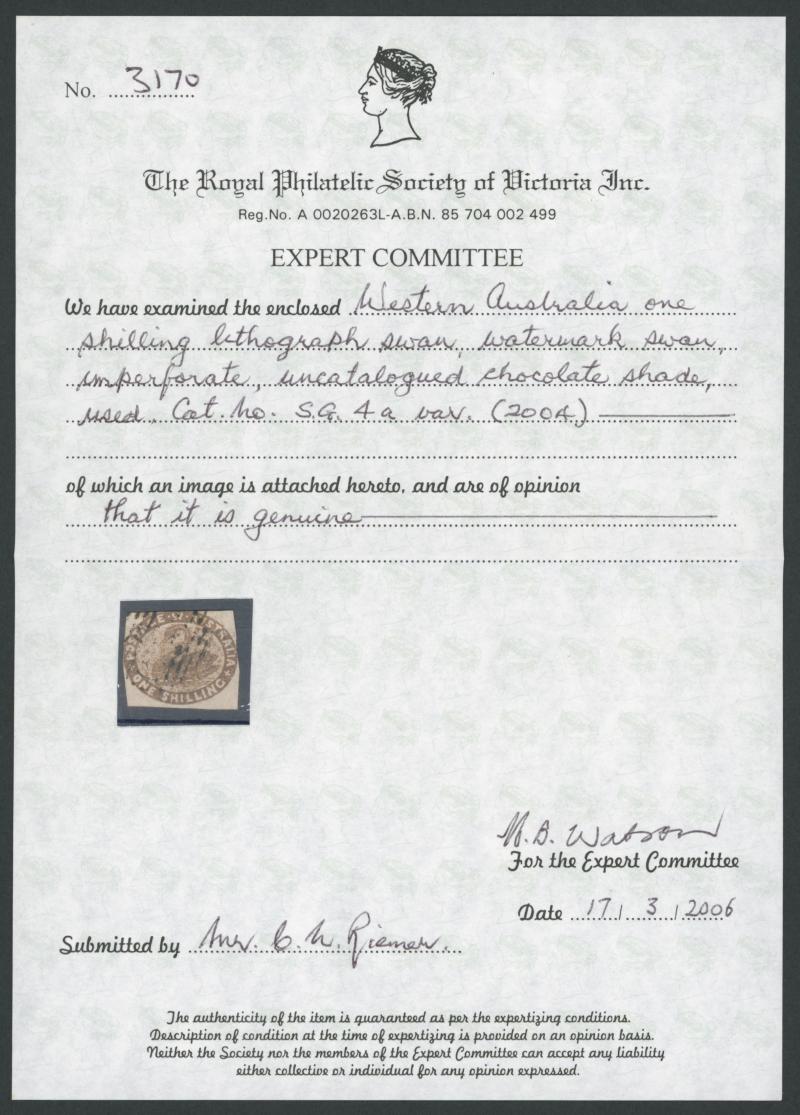 No. 3170
The Royal Philatelic Society of Victoria Inc.
Reg.No. A 0020263L-A.B.N. 85 704 002 499
EXPERT COMMITTEE
We have examined the enclosed Western Australia one
shilling lithograph swan, watermark swan,
imperforate, uncatalogued chocolate shade,
used. Cat. No. S.G. 4a var. (2004)
of which an image is attached hereto, and are of opinion
that it is genuine
POSTAGE W. AUSTRALIA
ONE SHILLING
B. Watson
For the Expert Committee
Date 17/3/2006
Submitted by Mr. Riemer.
The authenticity of the item is guaranteed as per the expertizing conditions.
Description of condition at the time of expertizing is provided on an opinion basis.
Neither the Society nor the members of the Expert Committee can accept any liability
either collective or individual for any opinion expressed.